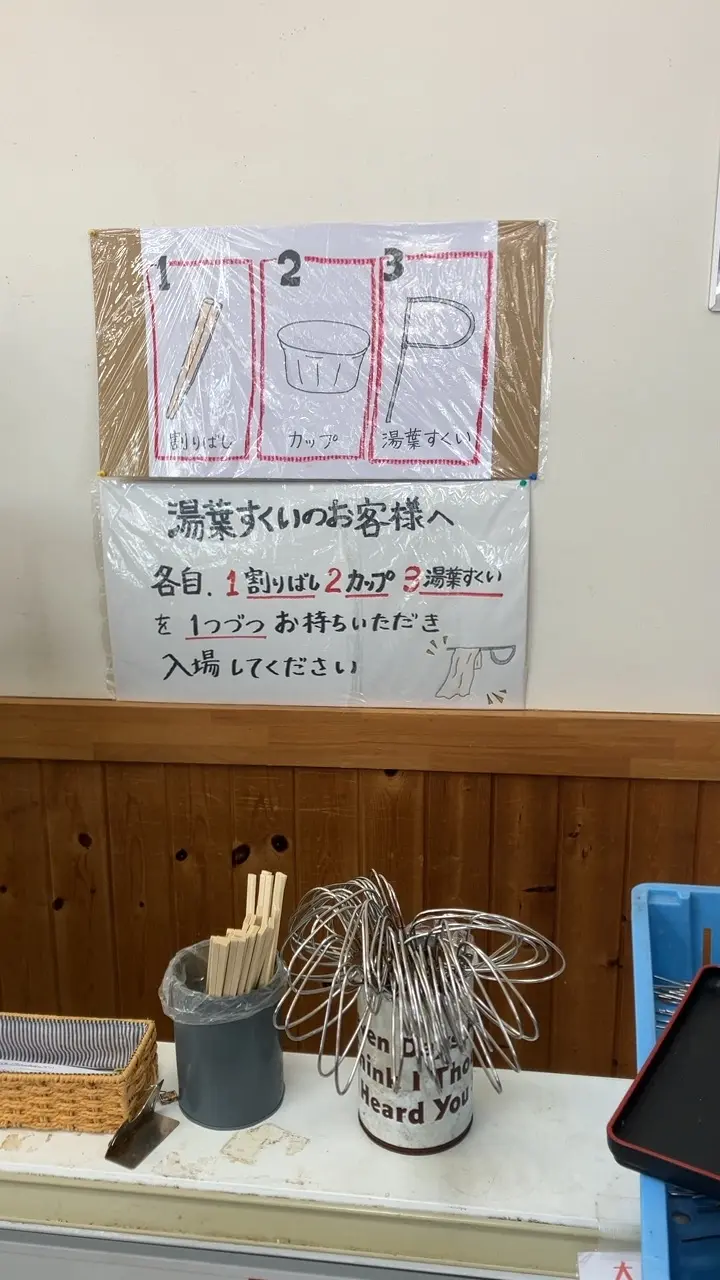 1
2
3
割りばし
カップ
湯葉すくい
湯葉すくいのお客様へ
各自. 1割りばし 2カップ 3湯葉すくい
を 1つづつ お持ちいただき
入場してください
I Tho
Heard You
大